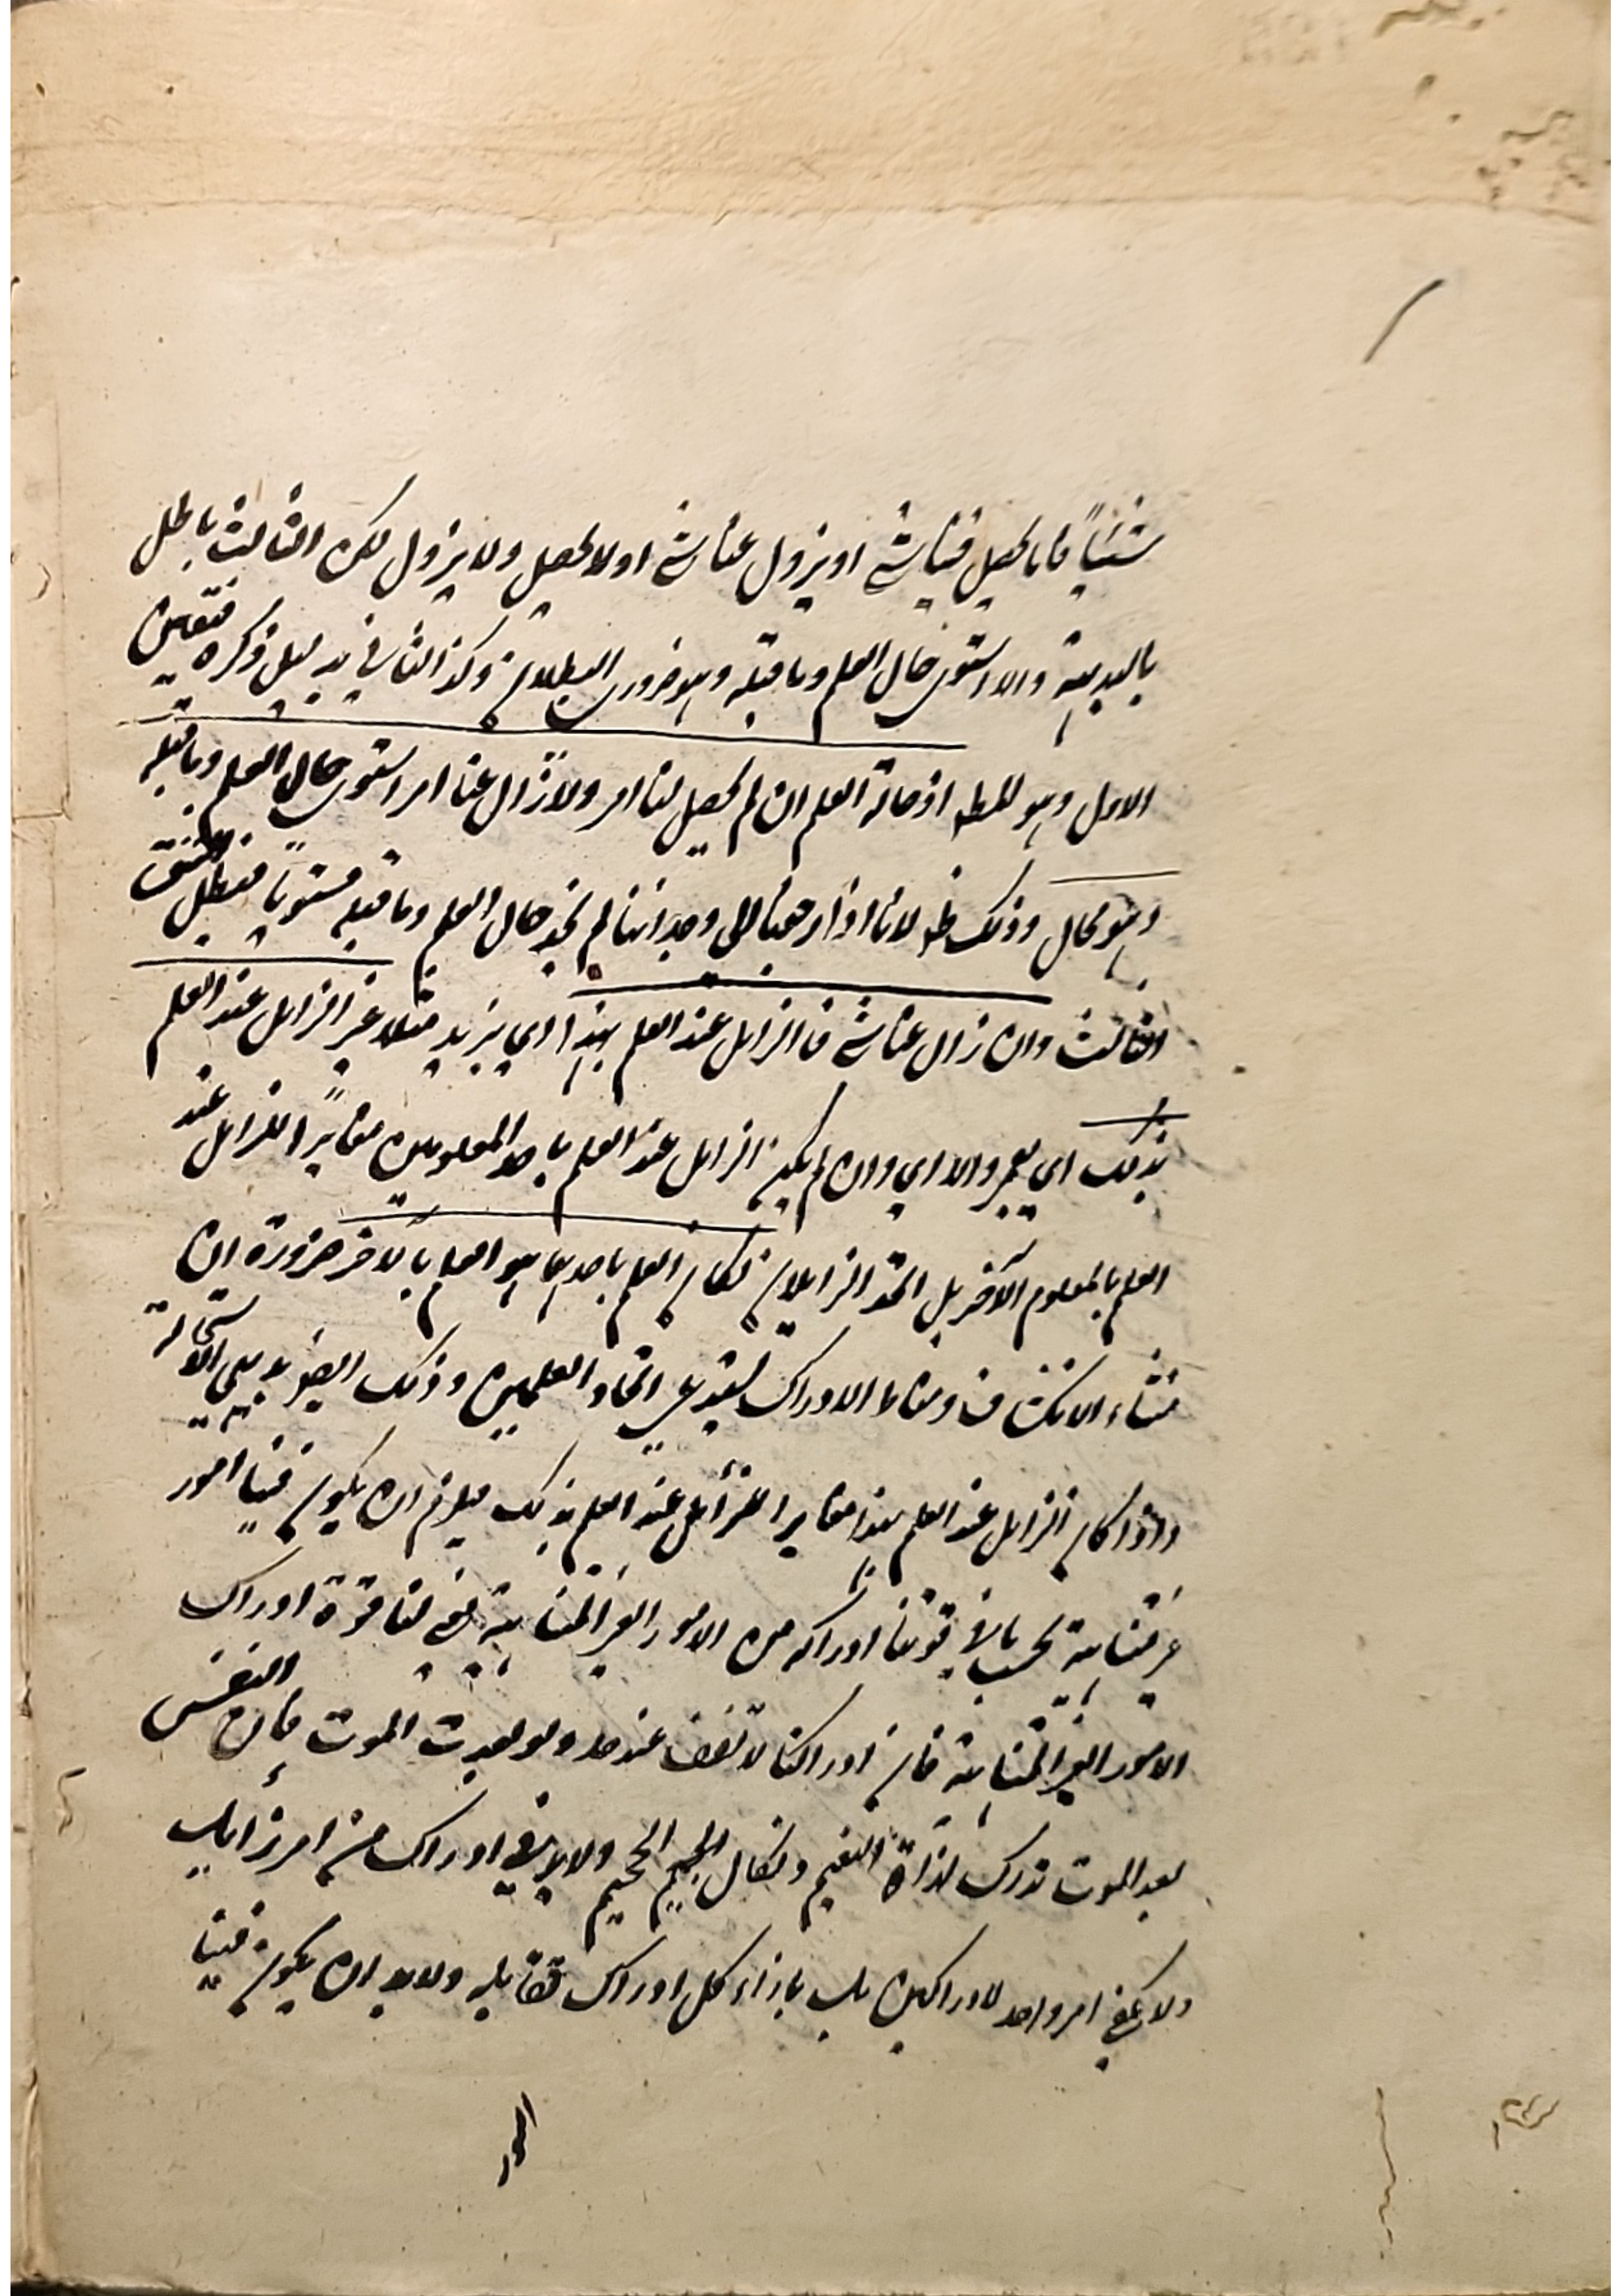 شيئاً فاما يحصل فينا شئ او يزول عنا شئ او لا يحصل ولا يزول لكن الثالث باطل
بالبديهة والا استوى حال العلم وما قبله وهو ضروري البطلان وكذا الثاني بدليل ذكره فتعين
الاول وهو المط اذ حالة العلم ان لم يحصل لنا امر ولا زال عنا امر استوى حال العلم وما قبله
وهو محال وذلك ظ لانا اذا رجعنا الى وجداننا لم نجد حال العلم وما قبله مستوياً فبطل الشق
الثالث وان زال عنا شئ فالزايل عند العلم بهذا اي بزيد مثلا غير الزايل عند العلم
بذلك اي بعمرو والا اي وان لم يكن الزايل عند العلم باحد المعلومين مغايراً للزايل عند
العلم بالمعلوم الآخر بل اتحد الزايلان لكان العلم باحدهما هو العلم بالآخر ضرورة ان
منشاء الانكشاف ومناط الادراك اتحاد العلمين وذلك ايضا بديهي الاستحالة
واذا كان الزايل عند العلم بهذا مغايرا للزائل عند العلم بذلك فيلزم ان يكون فينا امور
غير متناهية بحسب ما في قوتنا ادراكه من الامور الغير المتناهية ففي لنا قوة ادراك
الامور الغير المتناهية فان ادراكنا لا تقف عند حد ولو بعدت الموت فان النفس
بعد الموت تدرك لذاة النعيم ونكال الجحيم ولابد في ادراك من امر زايل
ولا يكفي امر واحد لادراكين بل بازاء كل ادراك ولابد ان يكون فينا
امور